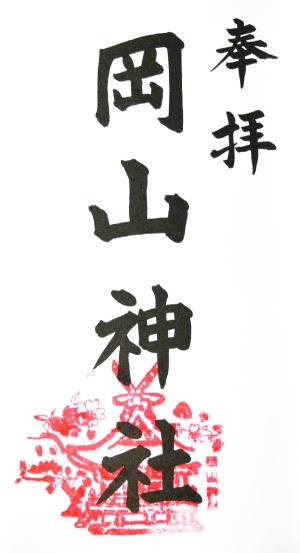 奉拝
岡山神社